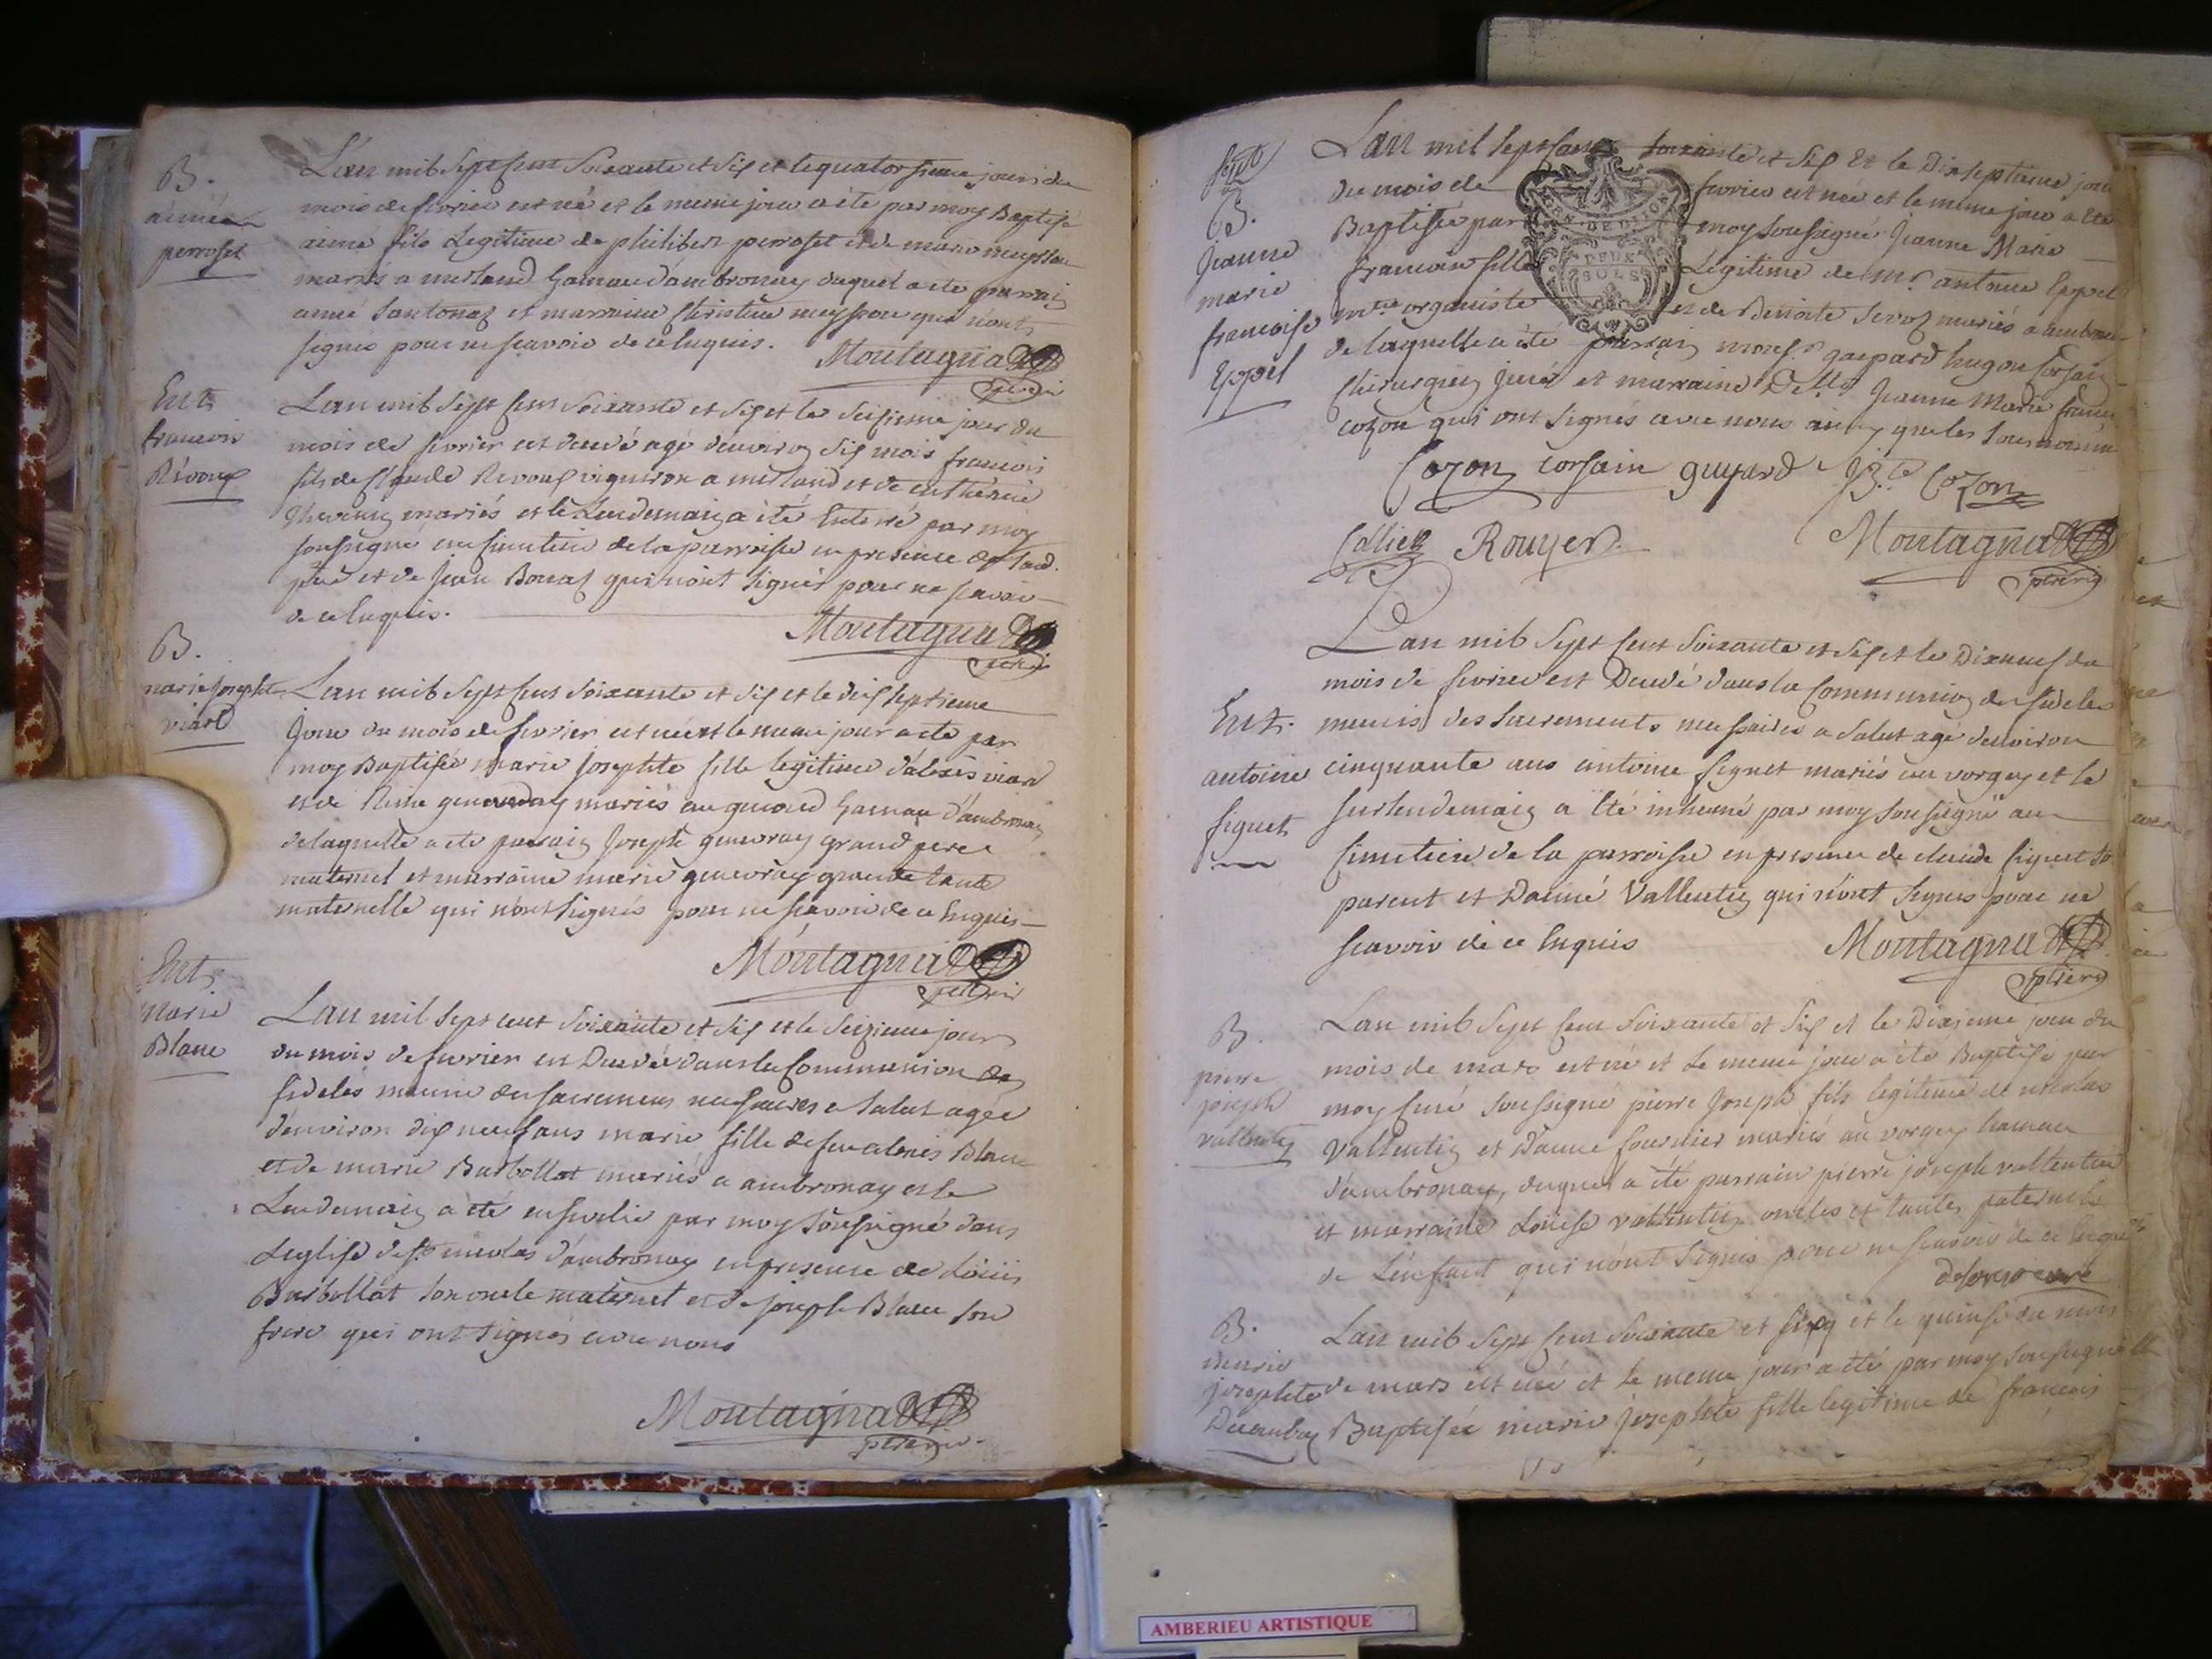 B.
aimé
perroset
L'an mil sept cent soixante et six et le quatorsieme jour du
mois de fevrier est né et le meme jour a été par moy Baptisé
aimé fils Legitime de philibert perroset et de marie meysson
mariés a merland hameau d'ambronay duquel a ete parrain
aimé santonax et marraine christine meysson qui n'ont
signés pour ne scavoir de ce luquis.
Montagnat
ptre vic
Ent.
francois
Révoux
L'an mil sept cent soixante et six et le seisieme jour du
mois de fevrier est decedé agé d'environ six mois francois
fils de Claude Revoux vigneron a merland et de catherine
mariés et le Lendemain a été Enterré par moy
soussigné au simetiere de la parroisse en presence de
et de Jean Bonaz qui n'ont signés pour ne scavoir
de ce luquis.
Montagnat
ptre vic
B.
marie Josephte
viard
L'an mil sept cent soixante et six et le dix septieme
Jour du mois de fevrier est née et le meme jour a ete par
moy Baptisée marie Josephte fille legitime d'alexis viard
et de mariés au genoud hameau d'ambronay
de laquelle a ete parrain Joseph genevray grand pere
maternel et marraine marie genevray grande tante
maternelle qui n'ont signés pour ne scavoir de ce luquis
Montagnat
ptre vic
Ent.
Marie
Blanc
L'an mil sept cent soixante et six et le seizieme jour
du mois de fevrier est Decedée dans la Communion des
fideles munie des sacremens necessaires a salut agée
d'environ dix neuf ans marie fille de feu Blanc
et de marie Barbollat mariés a ambronay et le
Lendemain a été ensevelie par moy soussigné dans
L'eglise de st. nicolas d'ambronay en presence de Loüis
Barbollat son oncle maternel et de joseph Blanc son
frere qui ont signés avec nous
Montagnat
ptre vic.
B.
Jeanne
marie
francoise
Eppel
L'an mil sept cent soixante et six Et le Dix septieme jour
du mois de fevrier est née et le meme jour a Ete
Baptisée par moy soussigné Jeanne Marie
francoise fille Légitime de Mr. antoine Eppel
mtre organiste et de Benoite mariés a ambronay
de laquelle a été parrain monsr. gaspard hugon corsain
chirurgien Juré et marraine Delle Jeanne Marie
cozon qui ont signés avec nous ainsy que les
GEN. DE DIJON
DEUX
SOLS
Cozon corsain guyard Cozon
Rouyer
Montagnat
ptre vic
Ent.
antoine
signet
L'an mil sept cent soixante et six et le Dixneuf du
mois de fevrier est Decedé dans la Communion des fideles
munis des sacrements necessaires a salut agé d'environ
cinquante ans antoine signet mariés au vorgey et le
surlendemain a été inhumé par moy soussigné au
simetiere de la parroisse en presence de claude signet son
parent et D'aimé Vallentin qui n'ont signés pour ne
scavoir de ce luquis
Montagnat
ptre vic
B.
pierre
joseph
vallentin
L'an mil sept cent soixante et six et le Dixieme jour du
mois de mars est né et Le meme jour a été Baptisé par
moy curé soussigné pierre Joseph fils legitime de nicolas
Vallentin et D'anne fournier mariés au vorgey hameau
d'ambronay, duquel a été parrain pierre joseph vallentin
et marraine Loüise vallentin oncles et tantes paternels
de L'enfant qui n'ont signés pour ne scavoir de ce luquis
curé
B.
marie
josephte
L'an mil sept cent soixante et six et le quinse du mois
de mars est née et Le meme jour a été par moy soussigné
Baptisée marie Josephte fille legitime de francois
AMBERIEU ARTISTIQUE